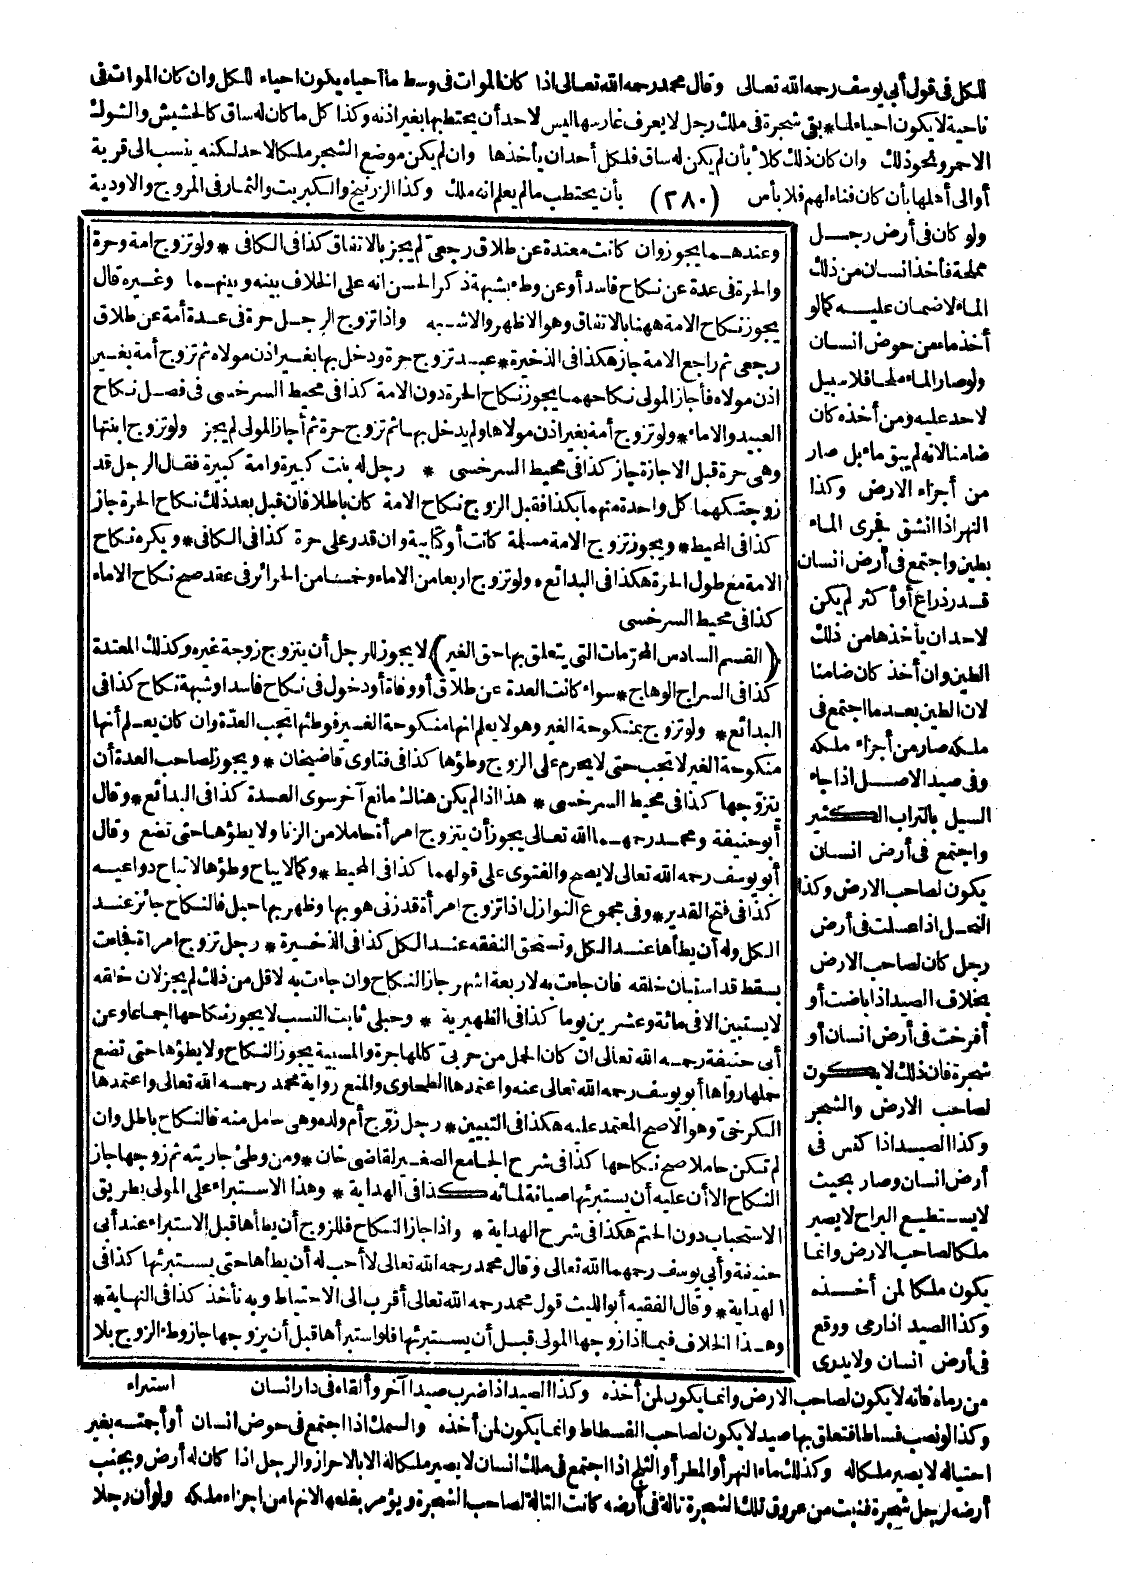 للكل فى قول أبى يوسف رحمه الله تعالى وقال محمد رحمه الله تعالى اذا كان الموات فى وسط ما أحياه يكون احياء للكل وان كان الموات فى
ناحية لا يكون احياء لما بقى شجرة فى ملك رجل لا يعرف غارسها ليس لاحد أن يحتطبها بغير اذنه وكذا كل ما كان له ساق كالحشيش والشوك
الاحمر ونحو ذلك وان كان ذلك كلأ بأن لم يكن له ساق فلكل أحد ان يأخذها وان لم يكن موضع الشجر ملكا لاحد لكنه ينسب الى قرية
أو الى أهلها بأن كان فناء لهم فلا بأس (٢٨٠) بأن يحتطب ما لم يعلم انه ملك وكذا الزرنيخ والكبريت والثمار فى المروج والاودية
وعندهما يجوز وان كانت معتدة عن طلاق رجعى لم يجز بالاتفاق كذا فى الكافى * ولو تزوج امة وحرة
والحرة فى عدة عن نكاح فاسد أو عن وطء بشبهة ذكر الحسن انه على الخلاف بينه وبينهما وغيره قال
يجوز نكاح الامة ههنا بالاتفاق وهو الاظهر والاشبه واذا تزوج الرجل حرة فى عدة أمة عن طلاق
رجعى ثم راجع الامة جاز هكذا فى الذخيرة * عبد تزوج حرة ودخل بها بغير اذن مولاه ثم تزوج أمة بغير
اذن مولاه فأجاز المولى نكاحهما يجوز نكاح الحرة دون الامة كذا فى محيط السرخسى فى فصل نكاح
العبيد والاماء * ولو تزوج أمة بغير اذن مولاها ولم يدخل بها ثم تزوج حرة ثم أجاز المولى لم يجز ولو تزوج ابنتها
وهى حرة قبل الاجازة جاز كذا فى محيط السرخسى * رجل له بنت كبيرة وامة كبيرة فقال الرجل قد
زوجتكهما كل واحدة منهما بكذا فقبل الزوج نكاح الامة كان باطلا فان قبل بعد ذلك نكاح الحرة جاز
كذا فى المحيط * ويجوز تزوج الامة مسلمة كانت أو كتابية وان قدر على حرة كذا فى الكافى * ويكره نكاح
الامة مع طول الحرة هكذا فى البدائع * ولو تزوج اربعا من الاماء وخمسا من الحرائر فى عقد صح نكاح الاماء
كذا فى محيط السرخسى
(القسم السادس المحرمات التى يتعلق بها حق الغير) لا يجوز للرجل أن يتزوج زوجة غيره وكذلك المعتدة
كذا فى السراج الوهاج * سواء كانت العدة عن طلاق أو وفاة أو دخول فى نكاح فاسد او شبهة نكاح كذا فى
البدائع * ولو تزوج بمنكوحة الغير وهو لا يعلم انها منكوحة الغير فوطئها تجب العدّة وان كان يعلم أنها
منكوحة الغير لا تجب حتى لا يحرم على الزوج وطؤها كذا فى فتاوى قاضيخان * ويجوز لصاحب العدة أن
يتزوّجها كذا فى محيط السرخسى * هذا اذا لم يكن هنالك مانع آخر سوى العدة كذا فى البدائع * وقال
أبو حنيفة ومحمد رحمهما الله تعالى يجوز أن يتزوج امرأة حاملا من الزنا ولا يطؤها حتى تضع وقال
أبو يوسف رحمه الله تعالى لا يصح والفتوى على قولهما كذا فى المحيط * وكما لا يباح وطؤها لا تباح دواعيه
كذا فى فتح القدير * وفى مجموع النوازل اذا تزوج امرأة قد زنى هو بها وظهر بها حبل فالنكاح جائز عند
الكل وله أن يطأها عند الكل وتستحق النفقة عند الكل كذا فى الذخيرة * رجل تزوج امرأة فجاءت
بسقط قد استبان خلقه فان جاءت به لاربعة اشهر جاز النكاح وان جاءت به لاقل من ذلك لم يجز لان خلقه
لا يستبين الا فى مائة وعشرين يوما كذا فى الظهيرية * وحبلى ثابت النسب لا يجوز نكاحها اجماعا وعن
أبى حنيفة رحمه الله تعالى ان كان الحمل من حربىّ كالمهاجرة والمسبية يجوز النكاح ولا يطؤها حتى تضع
حملها رواها أبو يوسف رحمه الله تعالى عنه واعتمدها الطحاوى والمنع رواية محمد رحمه الله تعالى واعتمدها
الكرخىّ وهو الاصح المعتمد عليه هكذا فى التبيين * رجل زوّج أم ولده وهى حامل منه فالنكاح باطل وان
لم تكن حاملا صح نكاحها كذا فى شرح الجامع الصغير لقاضى خان * ومن وطئ جاريته ثم زوجها جاز
النكاح الا أن عليه أن يستبرئها صيانة لمائه كذا فى الهداية * وهذا الاستبراء على المولى بطريق
الاستحباب دون الحتم هكذا فى شرح الهداية * واذا جاز النكاح فللزوج أن يطأها قبل الاستبراء عند أبى
حنيفة وأبى يوسف رحمهما الله تعالى وقال محمد رحمه الله تعالى لا أحب له أن يطأها حتى يستبرئها كذا فى
الهداية * وقال الفقيه أبو الليث قول محمد رحمه الله تعالى أقرب الى الاحتياط وبه نأخذ كذا فى النهاية *
وهذا الخلاف فيما اذا زوجها المولى قبل أن يستبرئها فلو استبرأها قبل أن يزوجها جاز وطء الزوج بلا
استبراء
ولو كان فى أرض رجل
مملحة فأخذ انسان من ذلك
الماء لا ضمان عليه كما لو
أخذ ماء من حوض انسان
ولو صار الماء ملحا فلا سبيل
لاحد عليه ومن أخذه كان
ضامنا لانه لم يبق ماء بل صار
من أجزاء الارض وكذا
النهر اذا انشق فجرى الماء
بطين واجتمع فى أرض انسان
قدر ذراع أو أكثر لم يكن
لاحد ان يأخذها من ذلك
الطين وان أخذ كان ضامنا
لان الطين بعد ما اجتمع فى
ملكه صار من أجزاء ملكه
وفى صيد الاصل اذا جاء
السيل بالتراب الكثير
واجتمع فى أرض انسان
يكون لصاحب الارض وكذا
النحل اذا عسلت فى أرض
رجل كان لصاحب الارض
بخلاف الصيد اذا باضت أو
أفرخت فى أرض انسان أو
شجرة فان ذلك لا يكون
لصاحب الارض والشجر
وكذا الصيد اذا كنس فى
أرض انسان وصار بحيث
لا يستطيع البراح لا يصير
ملكا لصاحب الارض وانما
يكون ملكا لمن أخذه
وكذا الصيد اذا رمى ووقع
فى أرض انسان ولا يدرى
من رماه فانه لا يكون لصاحب الارض وانما يكون لمن أخذه وكذا الصيد اذا ضرب صيدا آخر وألقاه فى دار انسان
وكذا لو نصب فسطاطا فتعلق بها صيد لا يكون لصاحب الفسطاط وانما يكون لمن أخذه والسمك اذا اجتمع فى حوض انسان أو أجمته بغير
احتياله لا يصير ملكا له وكذلك ماء النهر أو المطر أو الثلج اذا اجتمع فى ملك انسان لا يصير ملكا له الا بالاحراز والرجل اذا كان له أرض وبجنب
أرضه لرجل شجرة فنبت من عروق تلك الشجرة تالة فى أرضه كانت التالة لصاحب الشجرة ويؤمر بقلعها لانها من اجزاء ملكه ولو أن رجلا